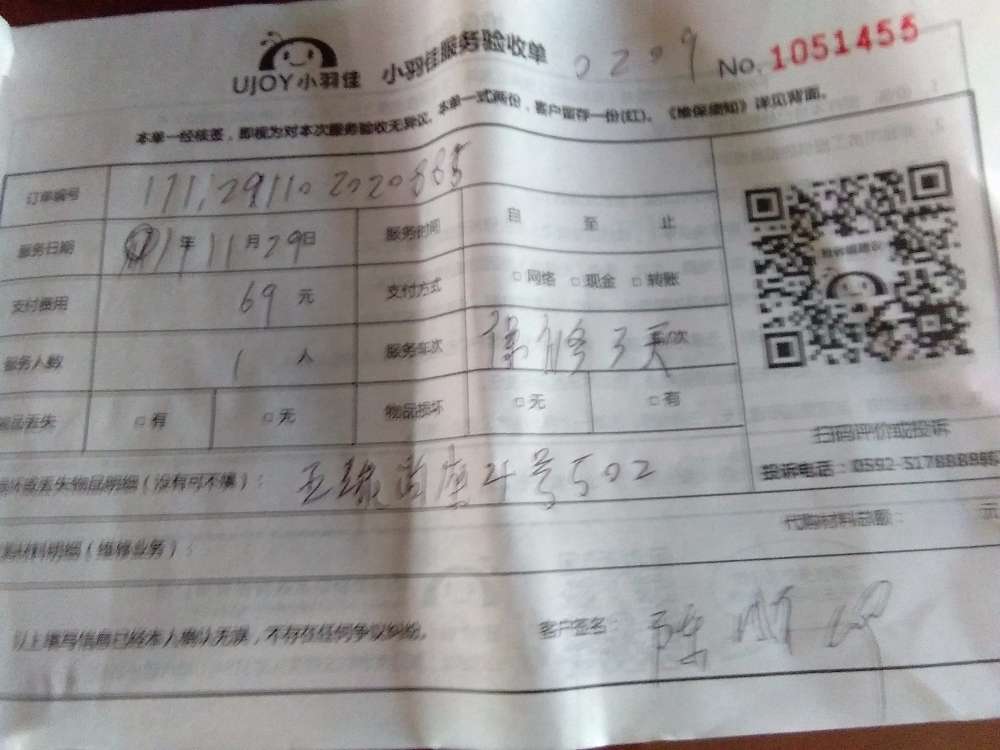 UJOY小羽佳 小羽佳服务验收单 0209 No. 1051455
本单一经核签，即视为对本次服务验收无异议。本单一式两份，客户留存一份(红)。《维保须知》详见背面。
订单编号
服务日期 年 11 月 29 日 服务时间 自 至 止
支付费用 69 元 支付方式 □ 网络 □ 现金 □ 转账
服务人数 1 人 服务车次 保修3天 /次
物品丢失 □ 有 □ 无 物品损坏 □ 无 □ 有
扫码评价或投诉
损坏或丢失物品明细（没有可不填）： 4号502
投诉电话：0592-5178888
代购材料总额： 元
材料明细（维修业务）：
以上填写信息已经本人确认无误，不存在任何争议纠纷。 客户签名： 陈